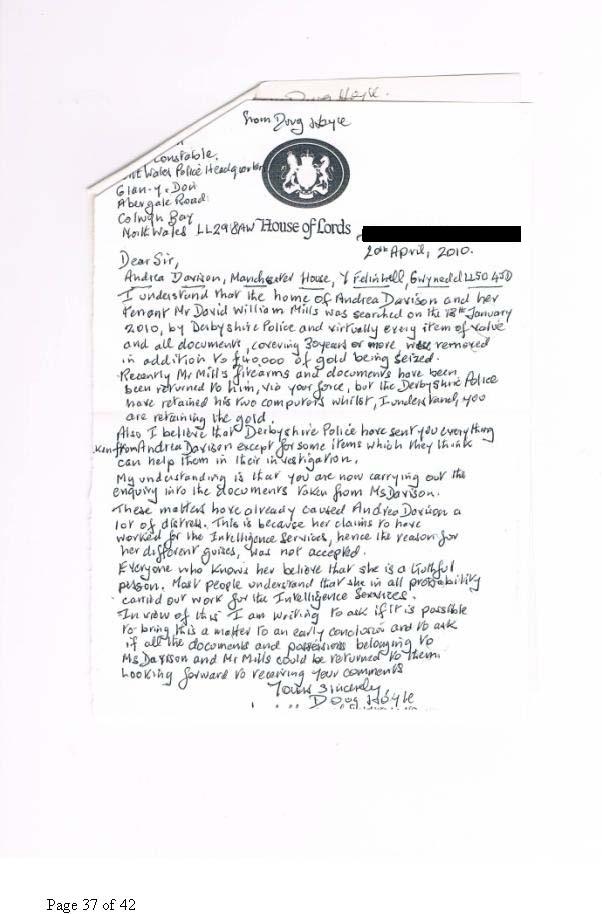 Doug Hoyle.
from Doug Hoyle
Constable,
North Wales Police Headquarters
Glan-y-Don
Abergale Road
Colwyn Bay
North Wales LL29 8AW House of Lords
20th April, 2010.
Dear Sir,
Andrea Davison, Manchester House, Y Felinhell, Gwynedd LL50 4SD
I understand that the home of Andrea Davison and her
tenant Mr David William Mills was searched on the 13th January
2010, by Derbyshire Police and virtually every item of value
and all documents, covering 30 years or more were removed
in addition to £40,000 of gold being seized.
Recently Mr Mills firearms and documents have been
been returned to him, via your force, but the Derbyshire Police
have retained his two computers whilst, I understand, you
are retaining the gold.
Also I believe that Derbyshire Police have sent you everything
ken from Andrea Davison except for some items which they think
can help them in their investigation.
My understanding is that you are now carrying out the
enquiry into the documents taken from Ms Davison.
These matters have already caused Andrea Davison a
lot of distress. This is because her claims to have
worked for the Intelligence Services, hence the reason for
her different guises, was not accepted.
Everyone who knows her believe that she is a truthful
person. Most people understand that she in all probability
carried out work for the Intelligence Services.
In view of this I am writing to ask if it is possible
to bring this a matter to an early conclusion and to ask
if all the documents and possessions belonging to
Ms Davison and Mr Mills could be returned to them.
Looking forward to receiving your comments
Yours Sincerely
Doug Hoyle
Page 37 of 42